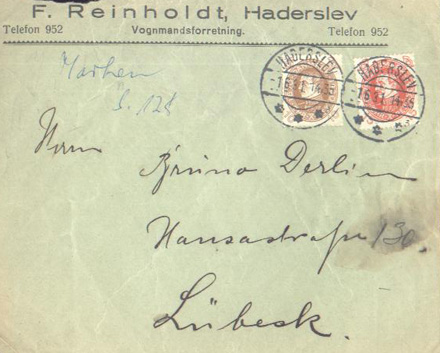 F. Reinholdt, Haderslev
Telefon 952 Vognmandsforretning. Telefon 952
HADERSLEV
HADERSLEV
Herrn
Bruno Derlien
Hansastraße 130.
Lübeck.